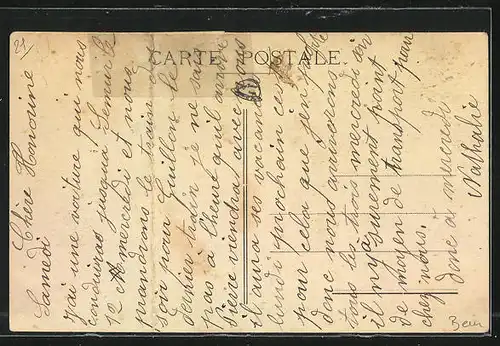 CARTE POSTALE
Samedi Chère Honorine
j'ai une voiture qui nous
conduiras jusqua Semur le
12 mercredi et nous
prendrons le train du
soir pour Guillon le
dernier train je ne sai
pas à l'heure qu'il arrive
Pierre viendra avec nous
il aura ses vacances
lundi prochain ce
pour cela que j'en profite
donc nous arriverons
tous les trois mercredi soir
il n'y a surement pant
de moyen de transport pour
chez nous.
donc a mercredi
Nathalie